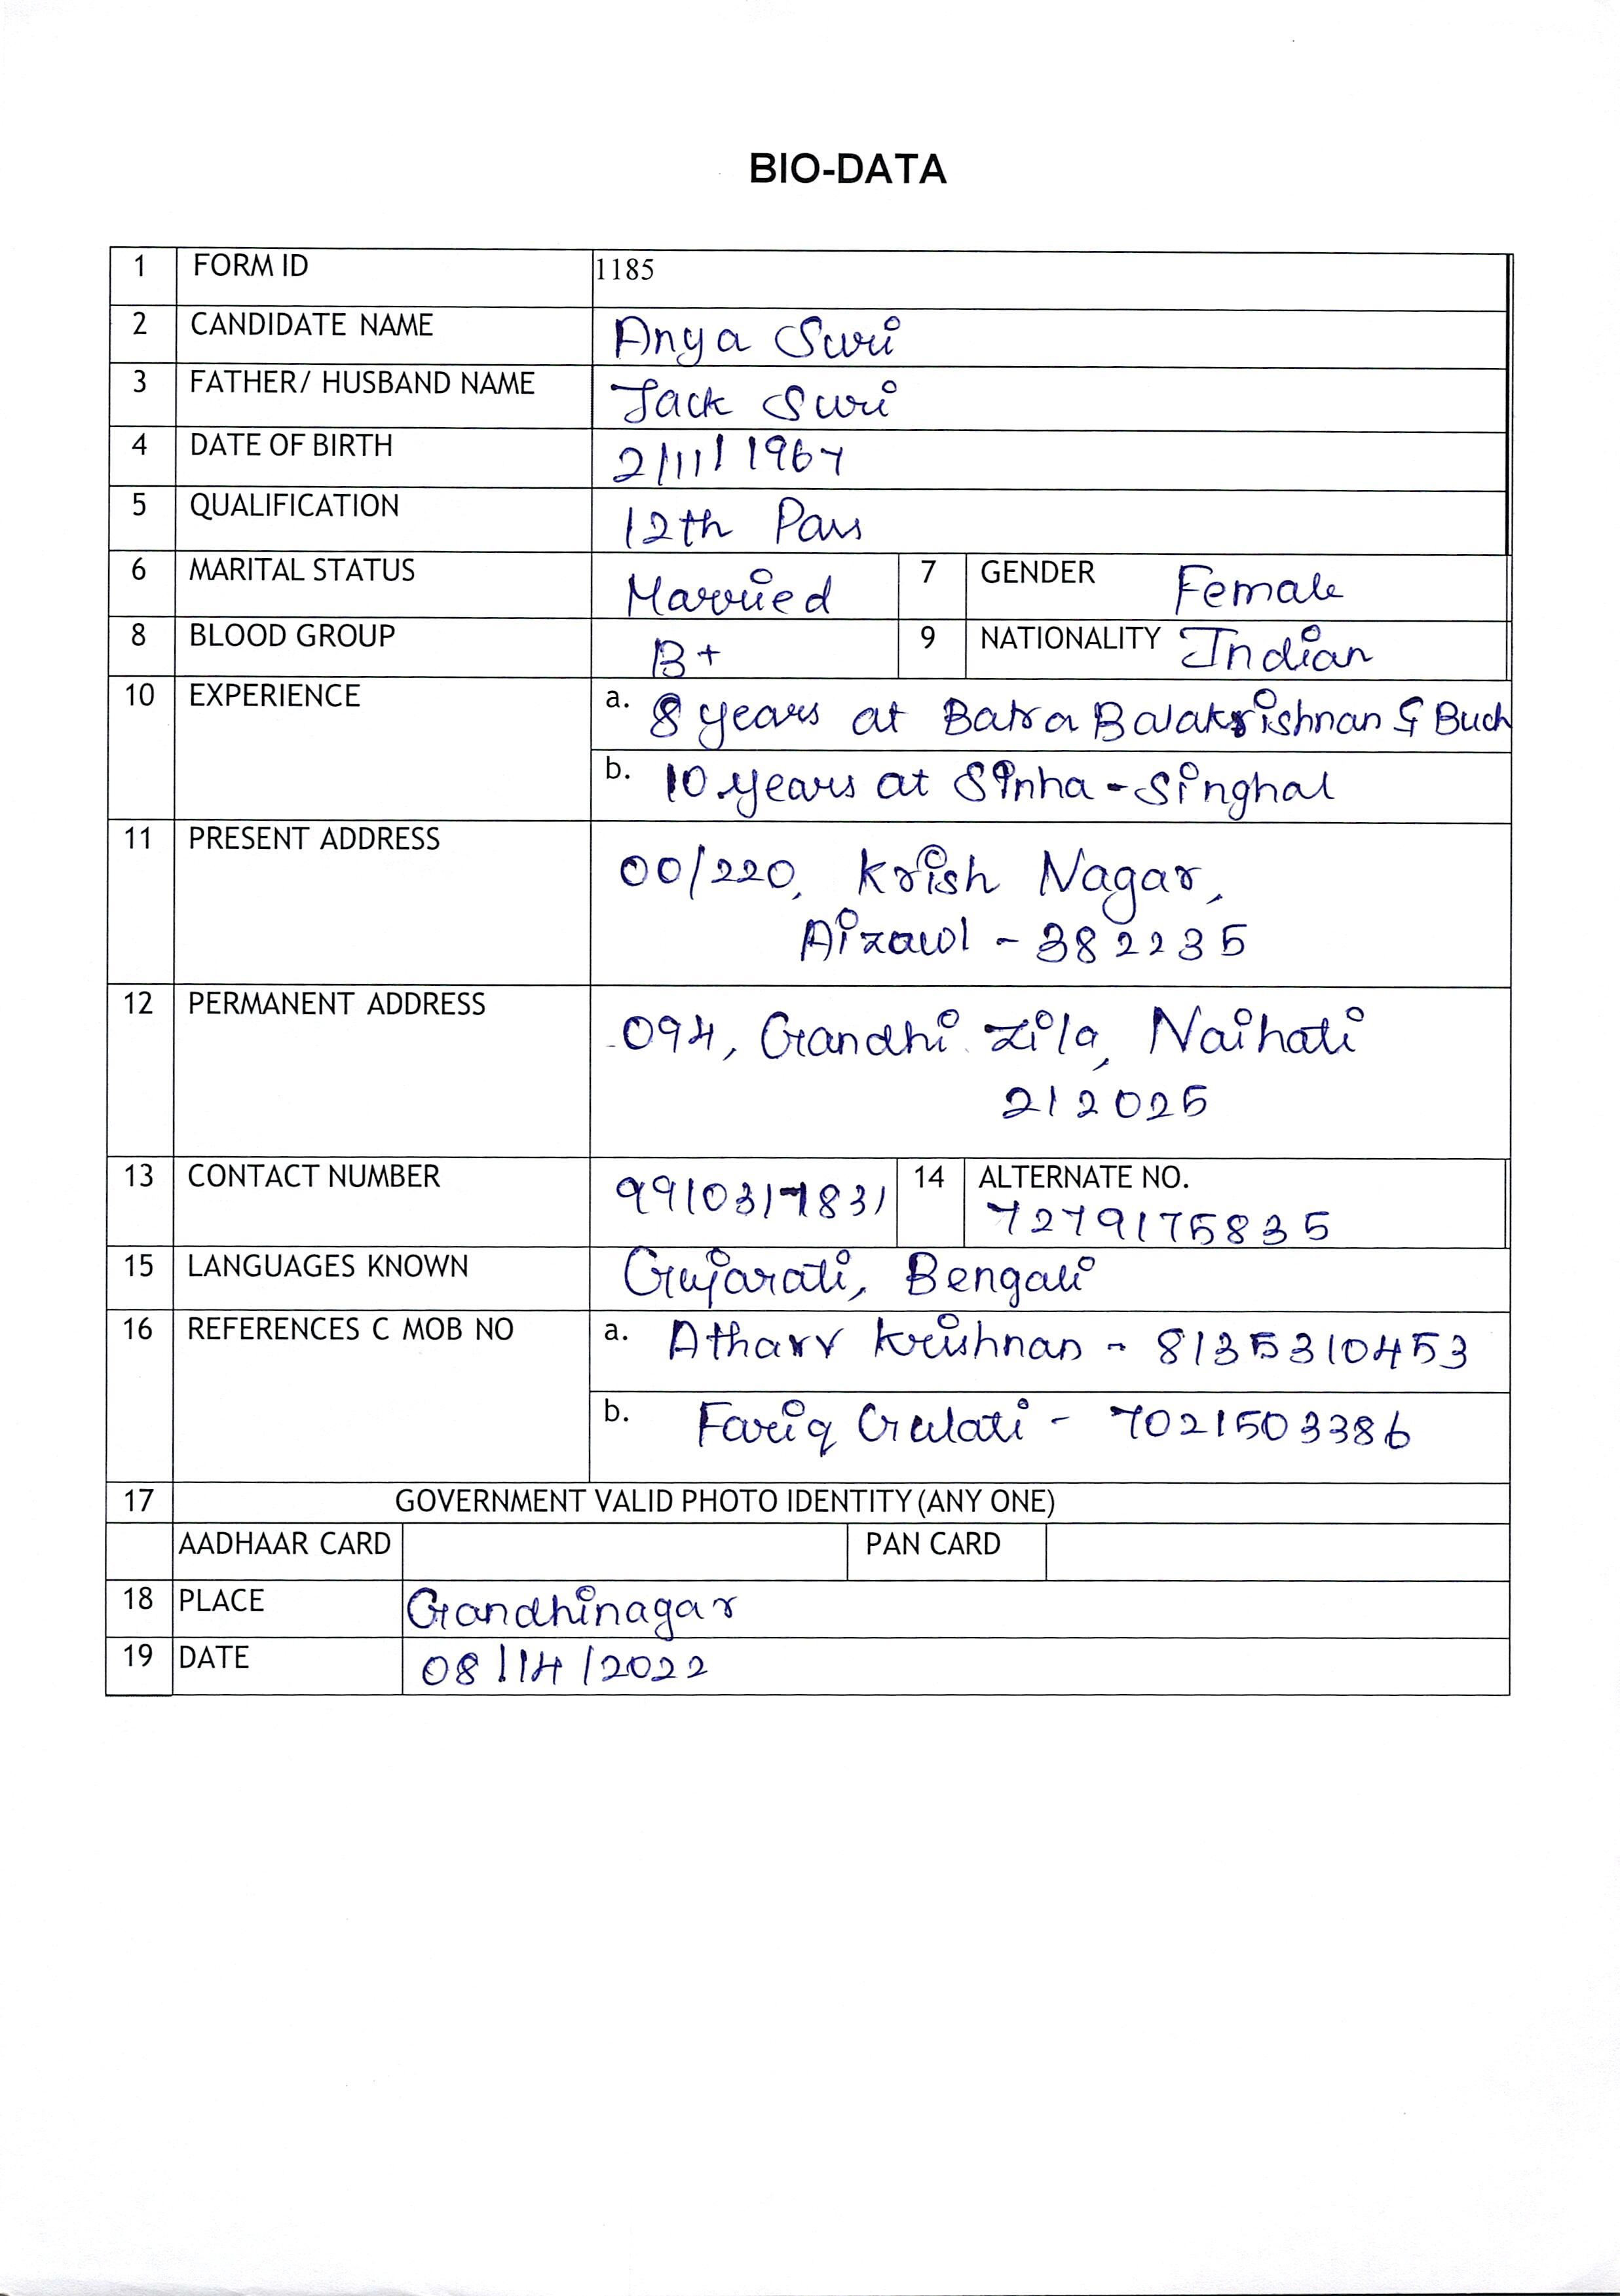 BIO-DATA
1 FORM ID 1185
2 CANDIDATE NAME Anya Suri
3 FATHER/ HUSBAND NAME Jack Suri
4 DATE OF BIRTH 2/11/1967
5 QUALIFICATION 12th Pass
6 MARITAL STATUS Married 7 GENDER Female
8 BLOOD GROUP B+ 9 NATIONALITY Indian
10 EXPERIENCE a. 8 years at Batra Balakrishnan & Buch
b. 10 years at Sinha - Singhal
11 PRESENT ADDRESS 00/220, Krish Nagar,
Aizawl - 382235
12 PERMANENT ADDRESS 094, Gandhi Zila, Naihati
212025
13 CONTACT NUMBER 9910317831 14 ALTERNATE NO.
7279175835
15 LANGUAGES KNOWN Gujarati, Bengali
16 REFERENCES C MOB NO a. Atharv Krishnan - 8135310453
b. Fariq Gulati - 7021503386
17 GOVERNMENT VALID PHOTO IDENTITY (ANY ONE)
AADHAAR CARD PAN CARD
18 PLACE Gandhinagar
19 DATE 08/14/2022